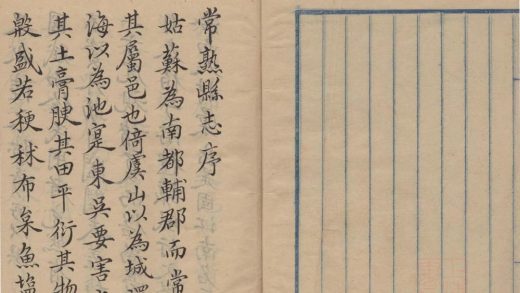 常熟縣志序
姑蘇為南都輔郡而常
其屬邑也倚虞山以為城
海以為池寔東吳要害
其土膏腴其田平衍其物
殷盛若稉秫布枲魚塩